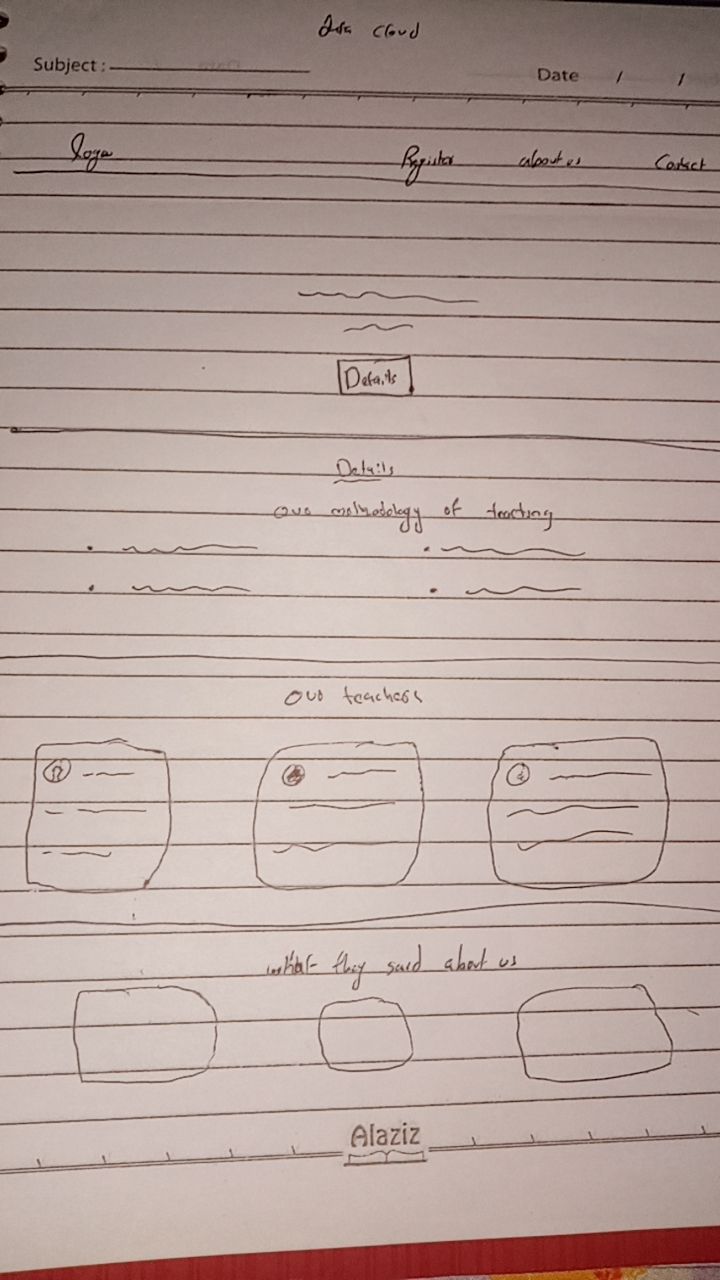 data cloud
Subject :
Date / /
logo Register about us Contact
Details
Details
our methodology of teaching
our teachers
what they said about us
Alaziz